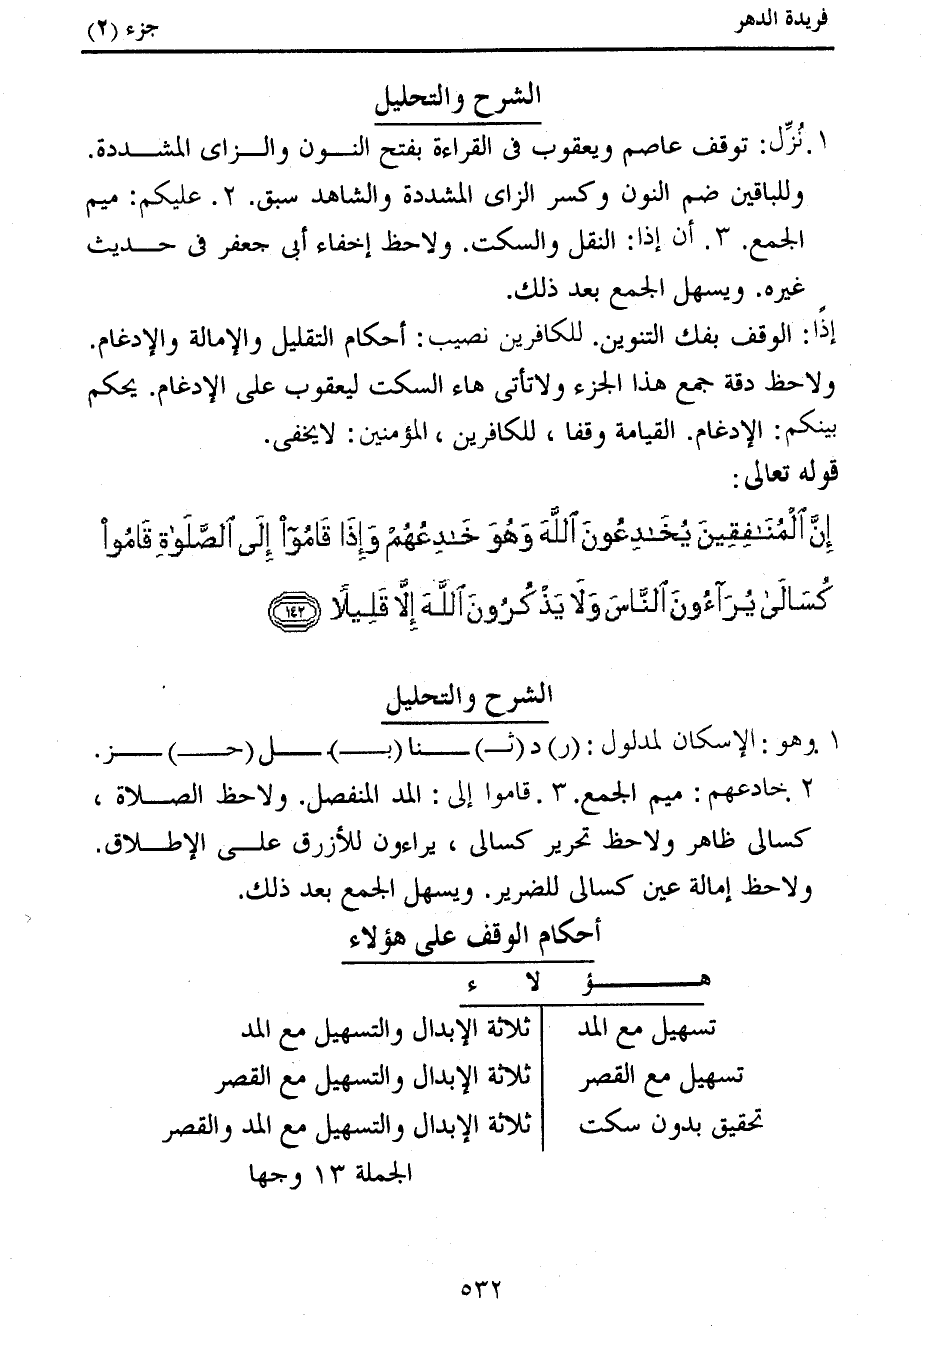 فريدة الدهر
جزء (٢)
الشرح والتحليل
١. نُزِّل: توقف عاصم ويعقوب فى القراءة بفتح النــون والــزاى المشــددة.
وللباقين ضم النون وكسر الزاى المشددة والشاهد سبق. ٢. عليكم: ميم
الجمع. ٣. أن إذا: النقل والسكت. ولاحظ إخفاء أبى جعفر فى حــديث
غيره. ويسهل الجمع بعد ذلك.
إذًا: الوقف بفك التنوين. للكافرين نصيب: أحكام التقليل والإمالة والإدغام.
ولاحظ دقة جمع هذا الجزء ولاتأتى هاء السكت ليعقوب على الإدغام. يحكم
بينكم: الإدغام. القيامة وقفا ، للكافرين ، المؤمنين: لايخفى.
قوله تعالى:
إِنَّ ٱلْمُنَٰفِقِينَ يُخَٰدِعُونَ ٱللَّهَ وَهُوَ خَٰدِعُهُمْ وَإِذَا قَامُوٓا۟ إِلَى ٱلصَّلَوٰةِ قَامُوا۟
كُسَالَىٰ يُرَآءُونَ ٱلنَّاسَ وَلَا يَذْكُرُونَ ٱللَّهَ إِلَّا قَلِيلًا ١٤٢
الشرح والتحليل
١ .وهو : الإسكان لمدلول : (ر) د (ثـ) ــنا (بـــ) ــل (حـــ) ــز.
٢ .خادعهم : ميم الجمع. ٣ .قاموا إلى : المد المنفصل. ولاحظ الصــلاة ،
كسالى ظاهر ولاحظ تحرير كسالى ، يراءون للأزرق علــى الإطــلاق.
ولاحظ إمالة عين كسالى للضرير. ويسهل الجمع بعد ذلك.
أحكام الوقف على هؤلاء
هـــــؤ لا ء
تسهيل مع المد ثلاثة الإبدال والتسهيل مع المد
تسهيل مع القصر ثلاثة الإبدال والتسهيل مع القصر
تحقيق بدون سكت ثلاثة الإبدال والتسهيل مع المد والقصر
الجملة ١٣ وجها
٥٣٢